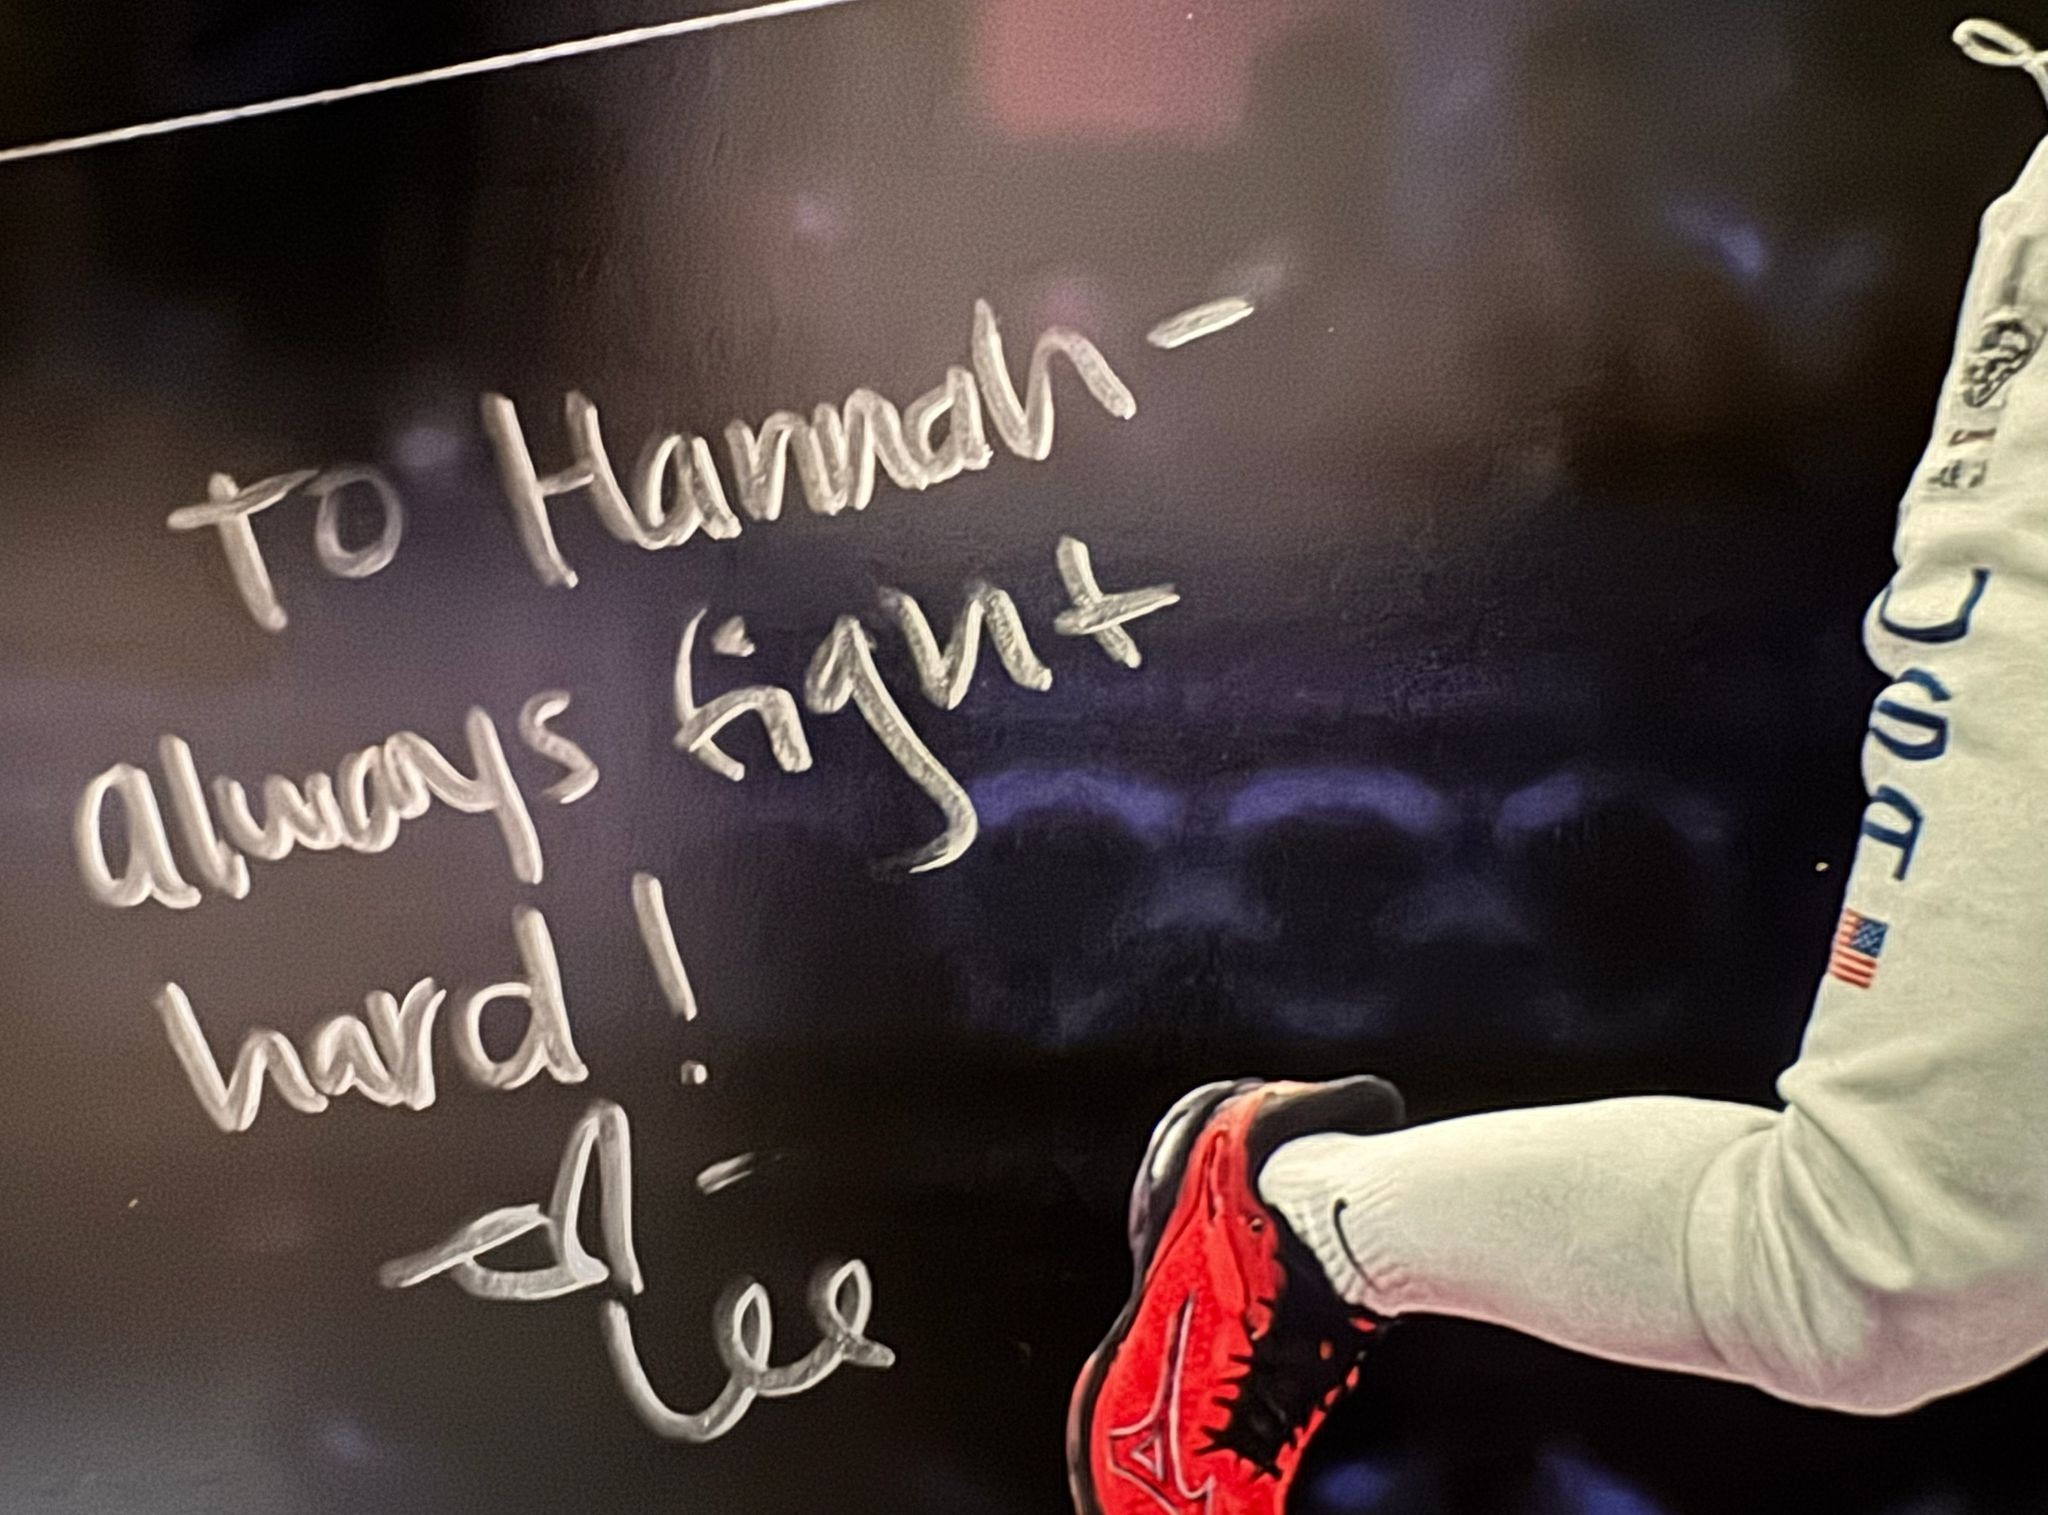 To Hannah-
always fight
hard!
-Lee
USA